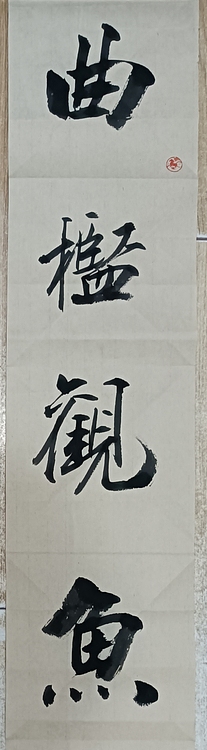 曲檻觀魚